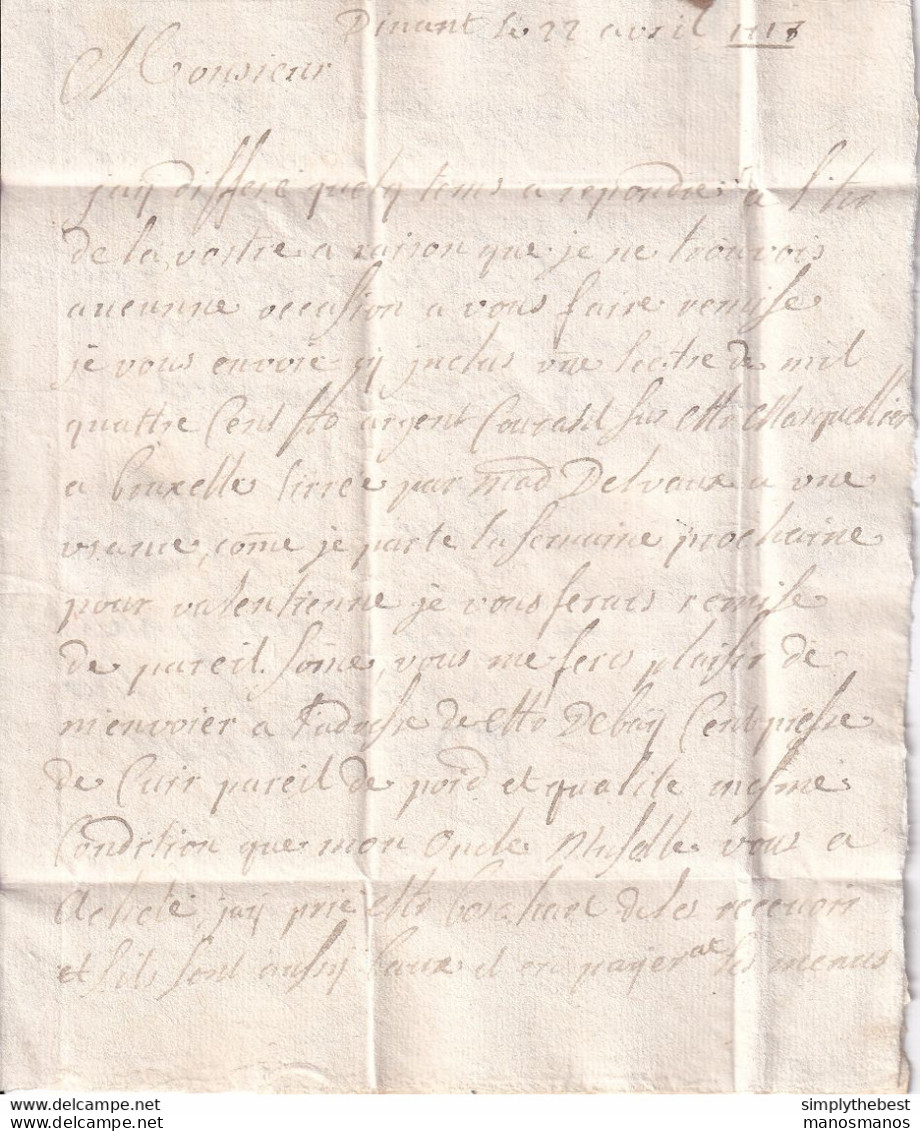 Dinant le 22 avril 1718
Monsieur
jaÿ differé quelq tems a repondre a l'hr
de la vostre a raison que je ne trouvois
aucunne occasion a vous faire remise
je vous envoie cÿ jnclus vne lectre de mil
quattre Cent flo argent Courant sur Mr Masquellier
a bruxelle tirrée par Mad Delvaux a vne
vsance, come je parte la semaine prochaine
pour valentienne je vous ferais remise
de pareil some, vous me feres plaisir de
m'envoier a l'adresse de Mr Debaÿ Cent piesse
de Cuir pareil de poid et qualite mesme
Condition que mon Oncle vous a
Acheté, jaÿ prié Mr de les recevoir
et s'ils sont aussÿ baux et en payerat les menus
simplythebest
manosmanos